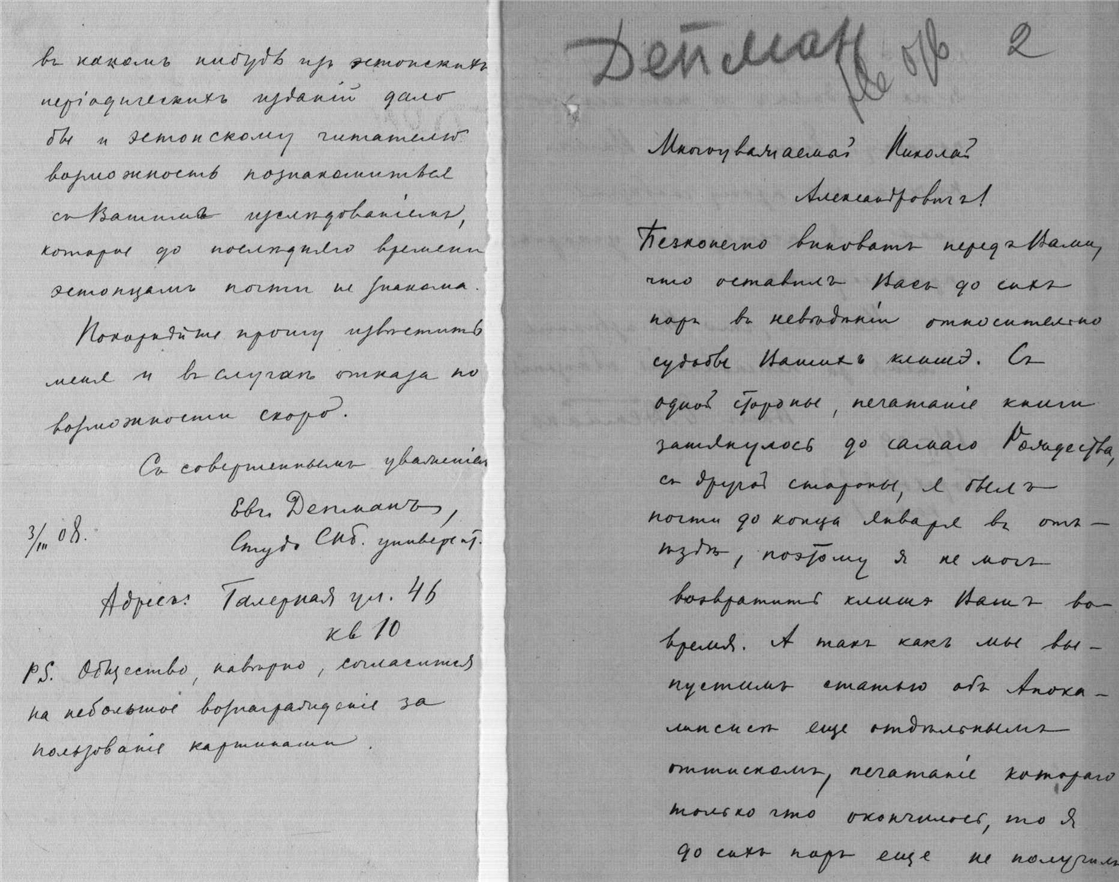 въ какомъ нибудь изъ эстонскихъ
періодическихъ изданій дало
бы и эстонскому читателю
возможность познакомиться
съ Вашимъ изслѣдованіемъ,
которое до послѣдняго времени
эстонцамъ почти не знакома.
Покорнѣйше прошу извѣстить
меня и въ случаѣ отказа по
возможности скорѣ.
Съ совершеннымъ уваженіемъ
Евг. Депманъ,
Студ. Спб. университ.
3/III 08.
Адресъ: Галерная ул. 46
кв 10
P.S. Общество, навѣрно, согласится
на небольшое вознагражденіе за
пользованіе картинами.
Депман
2
Многоуважаемый Николай
Александровичъ!
Безконечно виноватъ передъ Вами,
что оставилъ Васъ до сихъ
поръ въ невѣдѣніи относительно
судьбы Вашихъ клишэ. Съ
одной стороны, печатаніе книги
затянулось до самаго Рождества,
съ другой стороны, я былъ
почти до конца января въ отъ-
ѣздѣ, поэтому я не могъ
возвратить клишэ Вамъ во-
время. А такъ какъ мы вы-
пустимъ статью объ Апока-
липсисѣ еще отдѣльнымъ
оттискомъ, печатаніе котораго
только что окончилось, то я
до сихъ поръ еще не получилъ